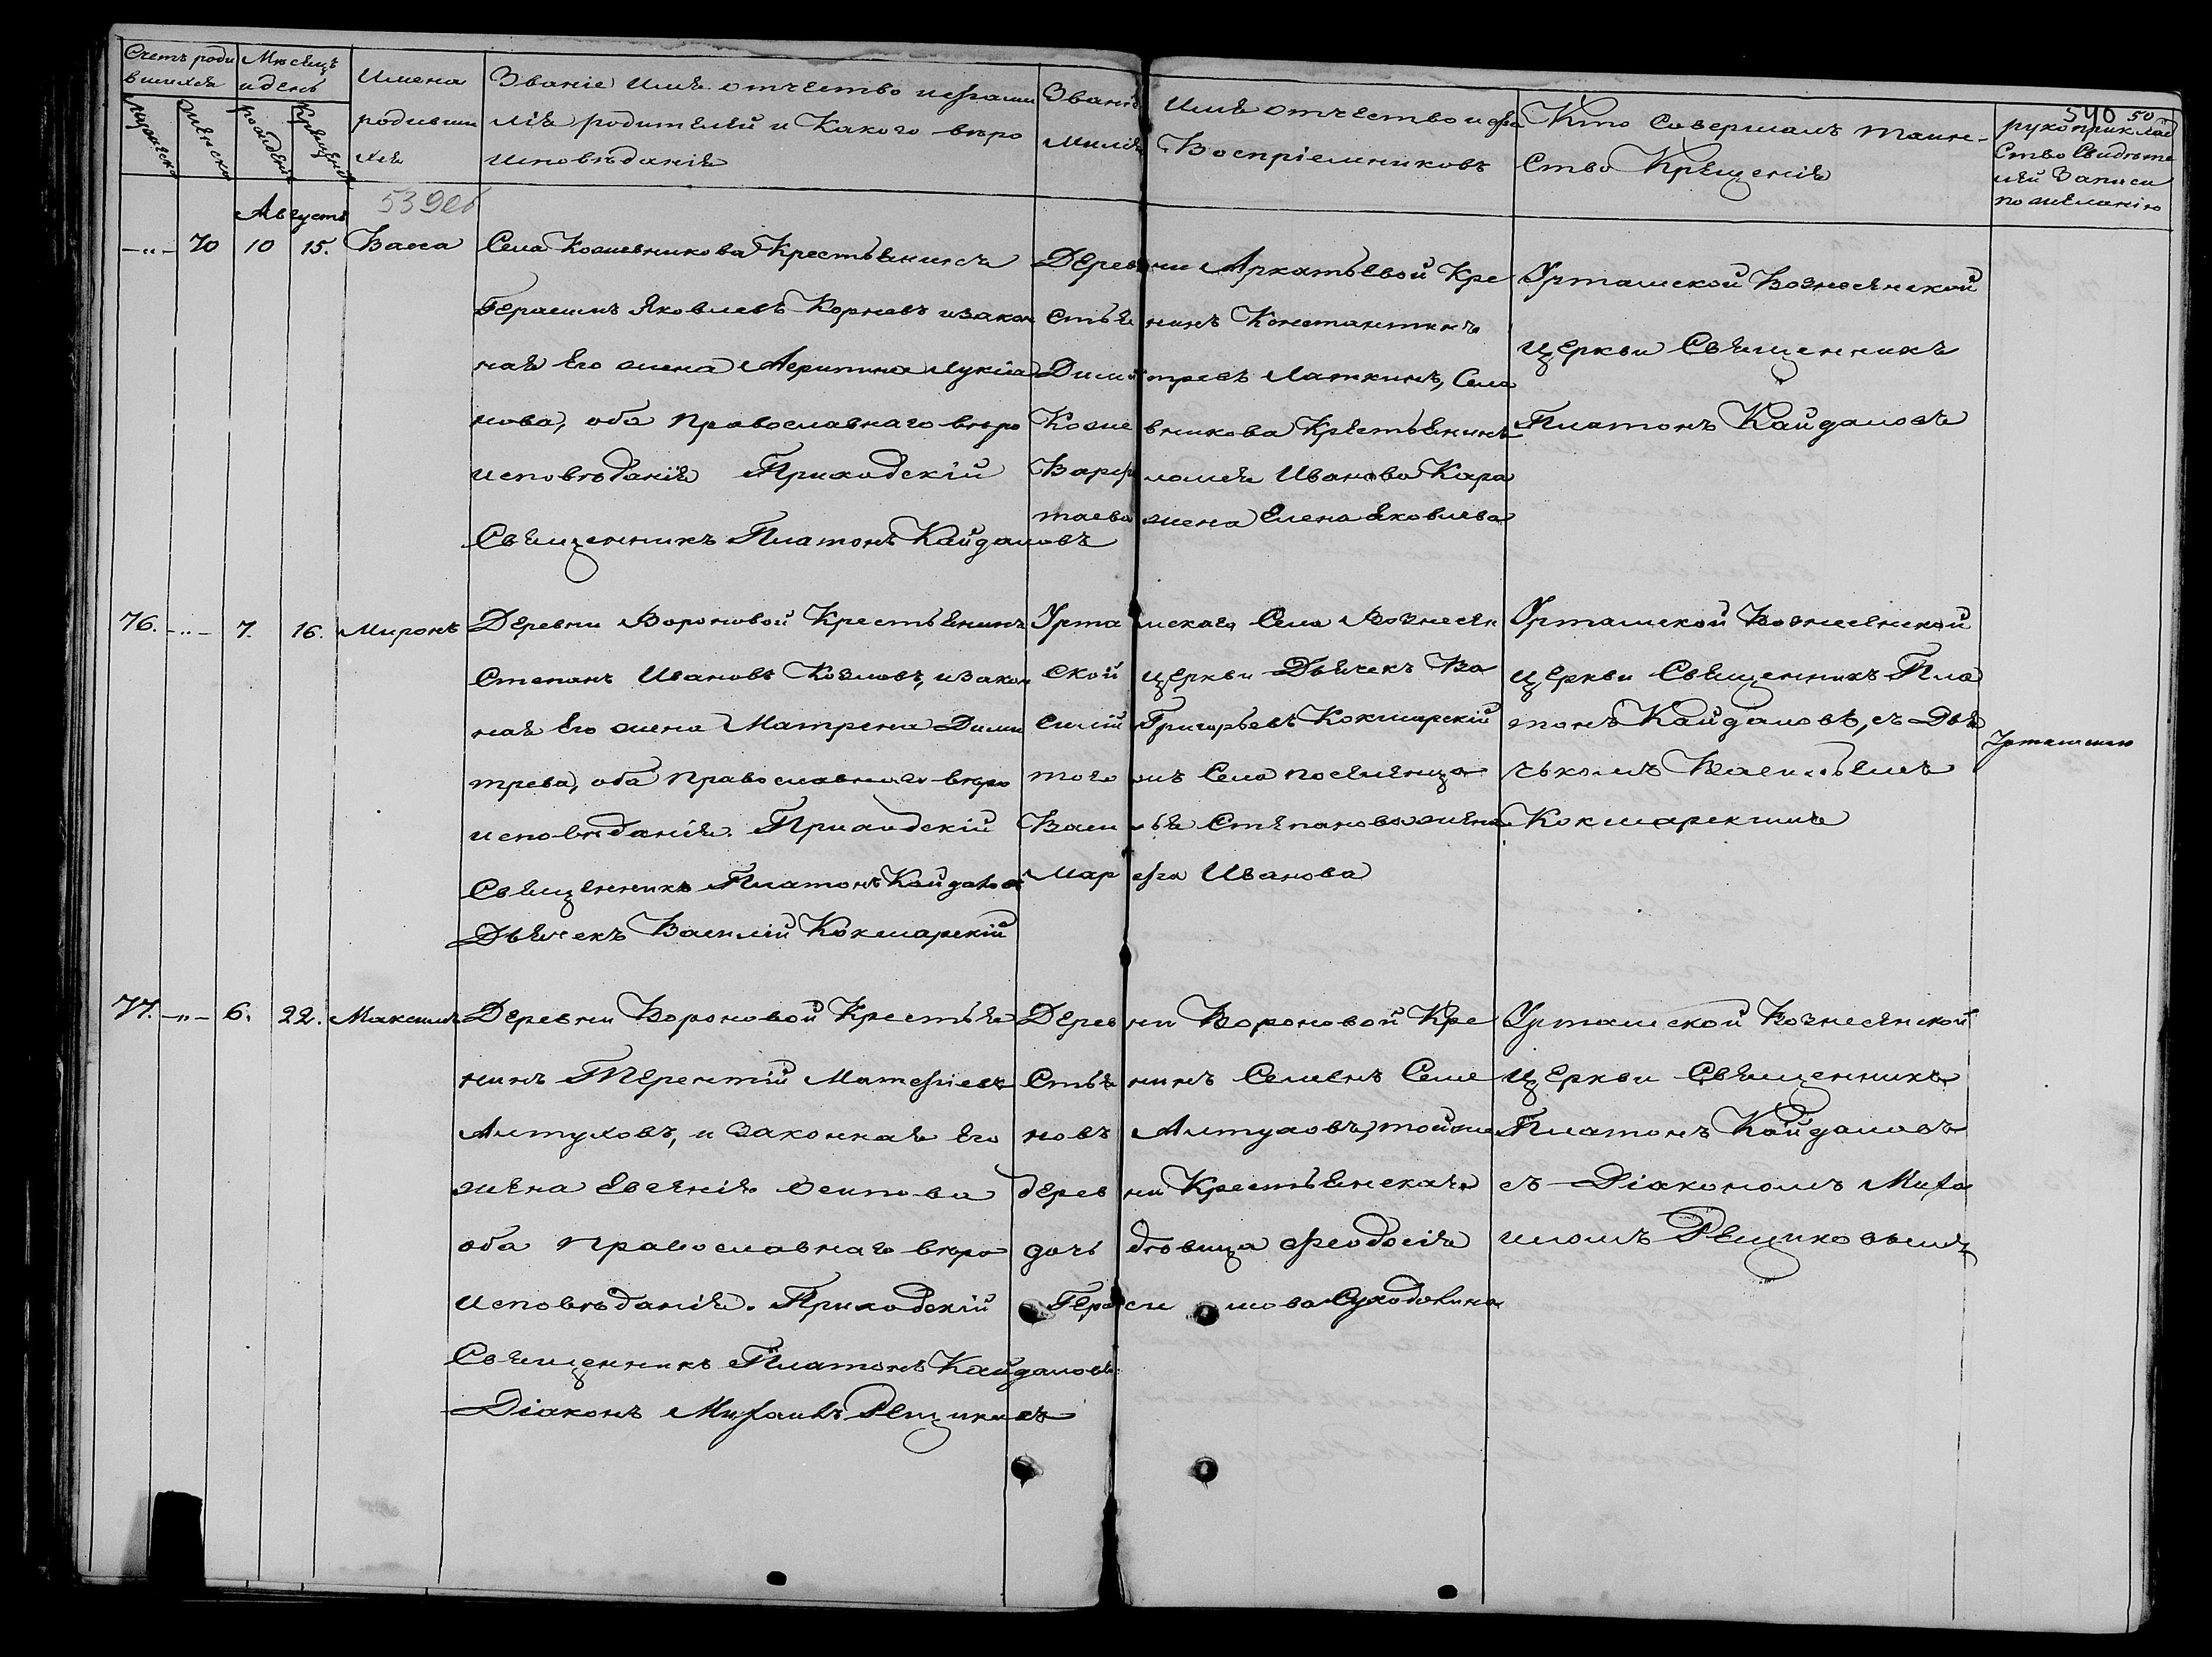 Счетъ роди
вшихся
Мѣсяцъ
и день
мужеска
женска
рожденія
Крещенія
Имена
родивши
хся
Званіе имя отчество и фами
лія родителей и Какого вѣро
исповѣданія
Званіе
милія
имя отчество и фа
Воспріемниковъ
Кто Совершалъ таин-
ство Крещенія
540 50
рукоприклад
ство свидѣте
лей Записи
по желанію
Августъ
539об
-"- 70 10 15. Васса
Села Кожевникова Крестьянинъ
Герасимъ Яковлевъ Корневъ и закон
ная Его жена Агрипина Лукіа
нова, оба православнаго вѣро
исповѣданія Приходскій
Священникъ Платонъ Кайдаловъ
Деревни Аркатьевой Кре
стьянинъ Константинъ
Димитревъ Латкинъ, Села
Кожевникова Крестьянина
Варфоломея Иванова Кара
таева жена Елена Яковлева
Урташской Вознесенской
церкви Священникъ
Платонъ Кайдаловъ
76. -"- 7. 16. Миронъ
Деревни Вороновой Крестьянинъ
Степанъ Ивановъ Козловъ, и закон
ная Его жена Матрена Дими
трева, оба православнаго вѣро
исповѣданія. Приходскій
Священникъ Платонъ Кайдаловъ
Дьячекъ Василій Кокшарскій
Урта скаго Села Вознесен
ской церкви Дьячекъ Ва
силій Григорьевъ Кокшарскій
того жъ Села поселенца
Василья Степанова жена
Марфа Иванова
Урташской Вознесенской
церкви Священникъ Пла
тонъ Кайдаловъ, съ Дья
чькомъ Васильемъ
Кокшарскимъ
77. -"- 6. 22. Максимъ
Деревни Вороновой Крестья
нинъ Терентій Матефіевъ
Алтуховъ, и законная Его
жена Евгенія Осипова
оба православнаго вѣро
исповѣданія. Приходскій
Священникъ Платонъ Кайдаловъ
Діаконъ Михаилъ Рещиковъ
Деревни Вороновой Кре
стьянинъ Семенъ Семе
новъ Алтуховъ, той же
деревни Крестьянская
дочь дѣвица Феодосія
Герасимова Суходолина
Урташской Вознесенской
церкви Священникъ
Платонъ Кайдаловъ
съ Діакономъ Миха
иломъ Рещиковымъ